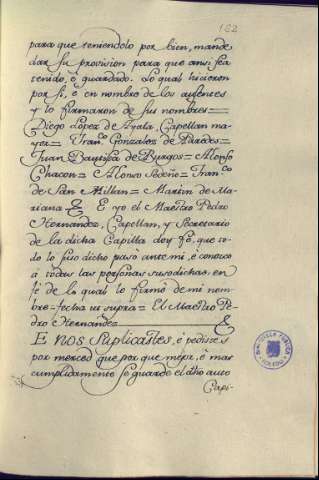 162
para que teniendolo por bien, mande
dar su provision para que ansi sea
tenido, è guardado. Lo qual hicieron
por si, è en nombre de los ausentes
y lo firmaron de sus nombres=
Diego Lopez de Ayala, Capellan ma-
yor= Franco. Gonzalez de Paredes=
Juan Bautista de Burgos= Alonso
Chacon= Alonso Sedeño= Franco.
de San Millan= Martin de Ma-
riana & E yo el Maestro Pedro
Hernandez, Capellan, y Secretario
de la dicha Capilla doy fé, que to-
do lo suso dicho pasò ante mi, è conozco
à todas las personas susodichas. en
fé de lo qual lo firmè de mi nom-
bre= fecha ut supra= El Maestro Pe-
dro Hernandez &
E NOS suplicastes, è pedistes
por merced que por que mejor, è mas
cumplidamente se guarde el dho auto
Capi-
BIBLIOTECA PUBLICA
TOLEDO